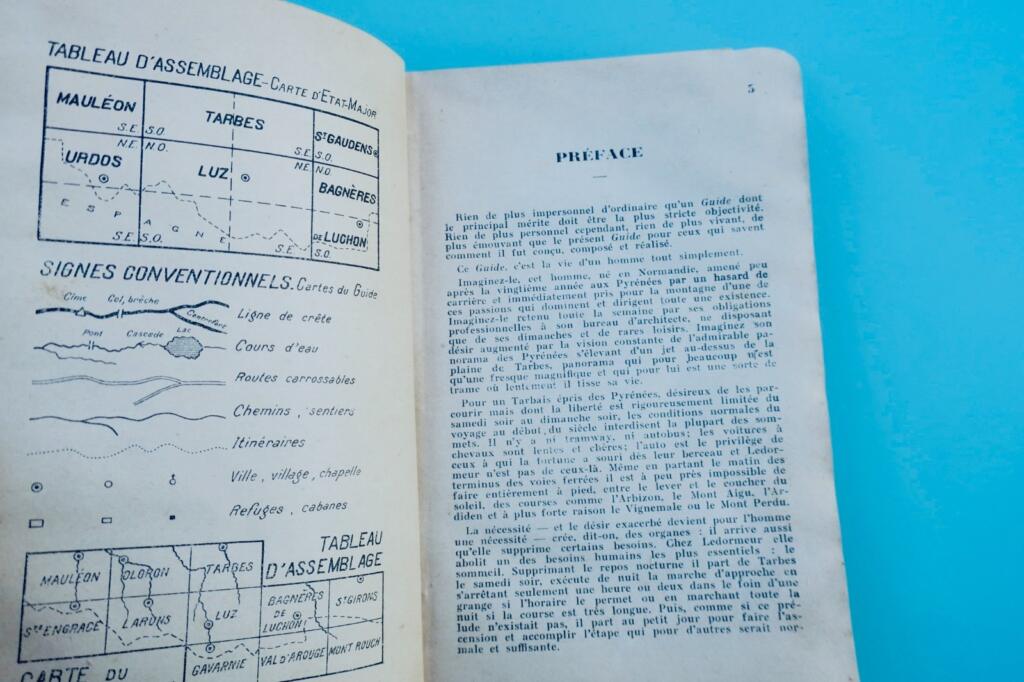 TABLEAU D'ASSEMBLAGE-CARTE D'ETAT-MAJOR
MAULÉON
TARBES
ST GAUDENS
S.E. S.O.
S.E. S.O.
N.E. N.O.
N.E. N.O.
URDOS
LUZ
BAGNÈRES
DE LUCHON
ESPAGNE
S.E. S.O.
S.E. S.O.
SIGNES CONVENTIONNELS. Cartes du Guide
Cime Col, brèche Contrefort
Ligne de crête
Pont Cascade Lac
Cours d'eau
Routes carrossables
Chemins, sentiers
Itinéraires
Ville, village, chapelle
Refuges, cabanes
TABLEAU
D'ASSEMBLAGE
MAULÉON OLORON TARBES
BAGNÈRES DE LUCHON
ST GIRONS
STE ENGRACE LARUNS LUZ
GAVARNIE VAL D'AROUGE MONT ROUCH
CARTE DU
5
PRÉFACE
Rien de plus impersonnel d'ordinaire qu'un Guide dont
le principal mérite doit être la plus stricte objectivité.
Rien de plus personnel cependant, rien de plus vivant, de
plus émouvant que le présent Guide pour ceux qui savent
comment il fut conçu, composé et réalisé.
Ce Guide, c'est la vie d'un homme tout simplement.
Imaginez-le, cet homme, né en Normandie, amené peu
après la vingtième année aux Pyrénées par un hasard de
carrière et immédiatement pris pour la montagne d'une de
ces passions qui dominent et dirigent toute une existence.
Imaginez-le retenu toute la semaine par ses obligations
professionnelles à son bureau d'architecte, ne disposant
que de ses dimanches et de rares loisirs. Imaginez son
désir augmenté par la vision constante de l'admirable pa-
norama des Pyrénées s'élevant d'un jet au-dessus de la
plaine de Tarbes, panorama qui pour beaucoup n'est
qu'une fresque magnifique et qui pour lui est une sorte de
trame où lentement il tisse sa vie.
Pour un Tarbais épris des Pyrénées, désireux de les par-
courir mais dont la liberté est rigoureusement limitée du
samedi soir au dimanche soir, les conditions normales du
voyage au début du siècle interdisent la plupart des som-
mets. Il n'y a ni tramway, ni autobus; les voitures à
chevaux sont lentes et chères; l'auto est le privilège de
ceux à qui la fortune a souri dès leur berceau et Ledor-
meur n'est pas de ceux-là. Même en partant le matin des
terminus des voies ferrées il est à peu près impossible de
faire entièrement à pied, entre le lever et le coucher du
soleil, des courses comme l'Arbizon, le Mont Aigu, l'Ar-
diden et à plus forte raison le Vignemale ou le Mont Perdu.
La nécessité — et le désir exacerbé devient pour l'homme
une nécessité — crée, dit-on, des organes : il arrive aussi
qu'elle supprime certains besoins. Chez Ledormeur elle
abolit un des besoins humains les plus essentiels : le
sommeil. Supprimant le repos nocturne il part de Tarbes
le samedi soir, exécute de nuit la marche d'approche en
s'arrêtant seulement une heure ou deux dans le foin d'une
grange si l'horaire le permet ou en marchant toute la
nuit si la course est très longue. Puis, comme si ce pré-
lude n'existait pas, il part au petit jour pour faire l'as-
cension et accomplir l'étape qui pour d'autres serait nor-
male et suffisante.